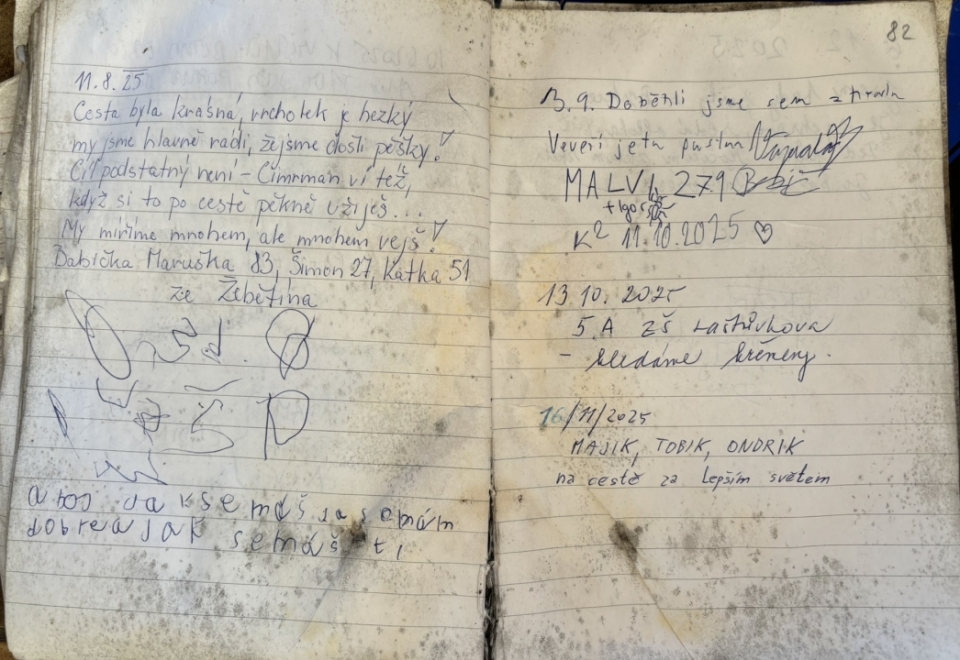 11.8.25
Cesta byla krásná, vrcholek je hezký
my jsme hlavně rádi, že jsme došli pěšky!
Cíl podstatný není – Cimrman ví též,
když si to po cestě pěkně užiješ...
My míříme mnohem, ale mnohem vejš!
Babička Maruška 83, Šimon 27, Katka 51
ze Žebětína
ahoj jak se máš já se mám
dobře a jak se máš ti
82
3.9. Doběhli jsme sem z hradu
Veveří je tu pustina
MALVI 279
+ Igor
K² 11.10.2025 ♡
13.10.2025
5.A ZŠ Laštůvkova
– hledáme křemeny.
16/11/2025
MAJIK, TOBIK, ONDRIK
na cestě za lepším světem